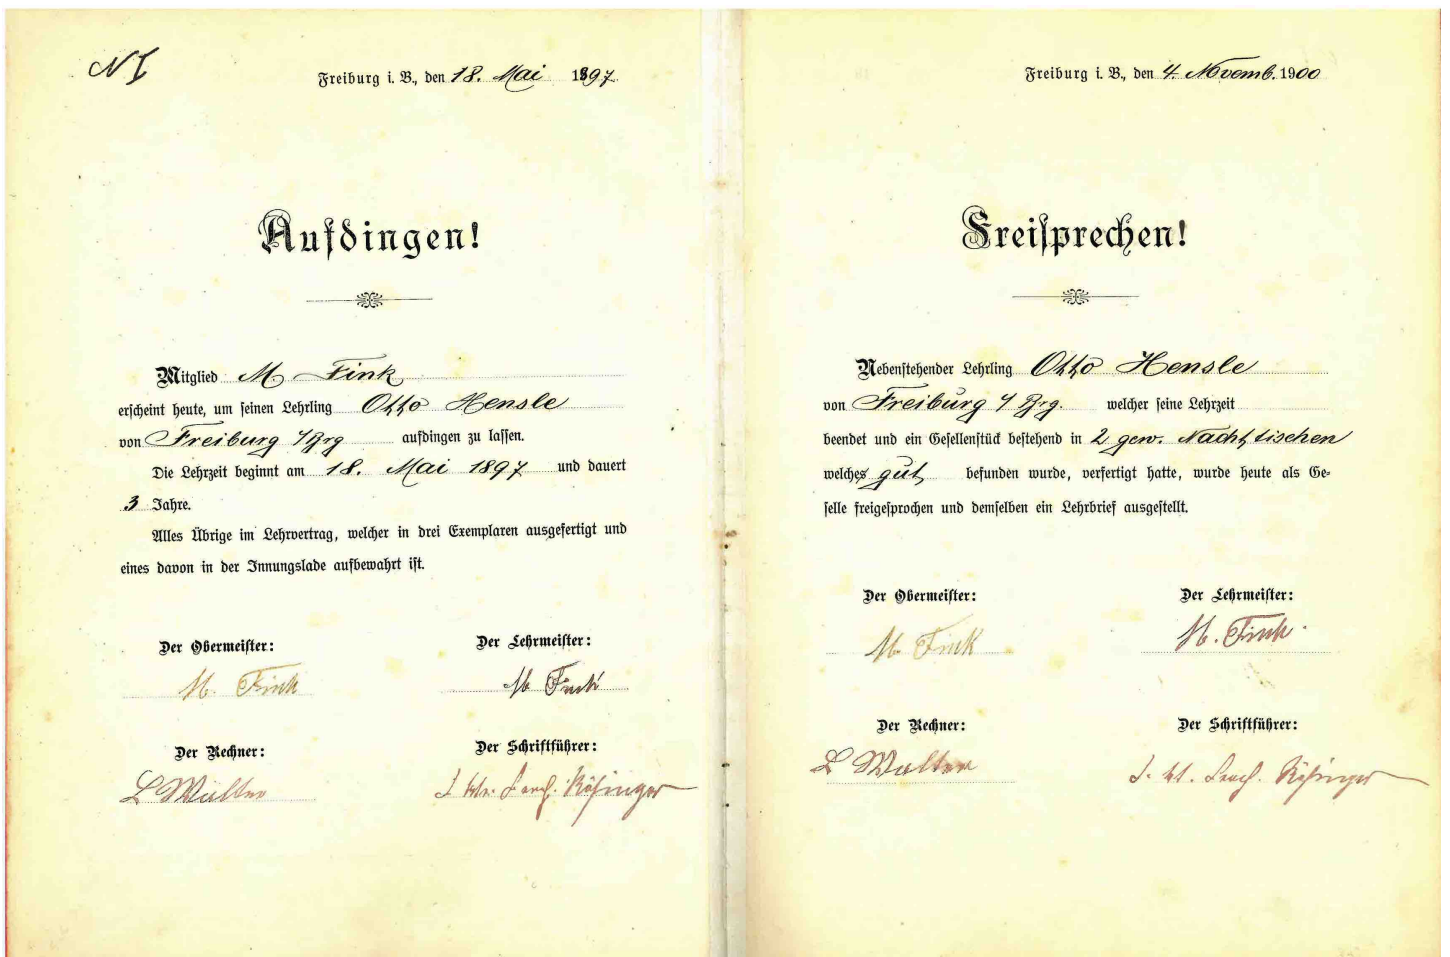 N I
Freiburg i. B., den 18. Mai 1897.
Aufdingen!
Mitglied M. Fink
erscheint heute, um seinen Lehrling Otto Hensle
von Freiburg i/Brg aufdingen zu lassen.
Die Lehrzeit beginnt am 18. Mai 1897 und dauert
3 Jahre.
Alles Übrige im Lehrvertrag, welcher in drei Exemplaren ausgefertigt und
eines davon in der Innungslade aufbewahrt ist.
Der Obermeister: Der Lehrmeister:
M. Fink M Fink
Der Rechner: Der Schriftführer:
L Walter
Freiburg i. B., den 4. Novemb. 1900
Freisprechen!
Nebenstehender Lehrling Otto Hensle
von Freiburg i/Brg. welcher seine Lehrzeit
beendet und ein Gesellenstück bestehend in 2 gew. Nachttischen
welches gut befunden wurde, verfertigt hatte, wurde heute als Ge-
selle freigesprochen und demselben ein Lehrbrief ausgestellt.
Der Obermeister: Der Lehrmeister:
M. Fink M. Fink.
Der Rechner: Der Schriftführer:
L Walter